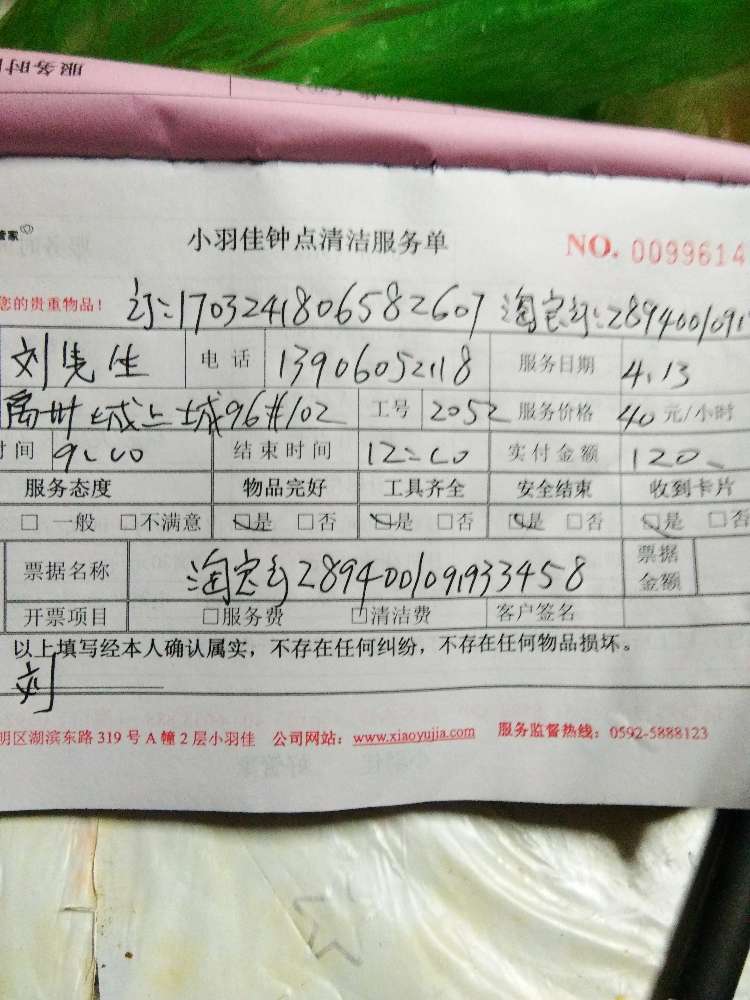 服务时
管家
小羽佳钟点清洁服务单 NO. 0099614
您的贵重物品! 订:1703241806582607 淘宝订:289400109
刘先生 电话 13906052118 服务日期 4.13
禹州上城上城96#102 工号 2052 服务价格 40 元/小时
时间 9:00 结束时间 12:00 实付金额 120
服务态度 物品完好 工具齐全 安全结束 收到卡片
□ 一般 □不满意 □是 □否 □是 □否 □是 □否 □是 □否
票据名称 淘宝订289400109933458 票据金额
开票项目 □服务费 □清洁费 客户签名
以上填写经本人确认属实,不存在任何纠纷,不存在任何物品损坏。
刘
明区湖滨东路 319 号 A 幢 2 层小羽佳 公司网站:www.xiaoyujia.com 服务监督热线:0592-5888123